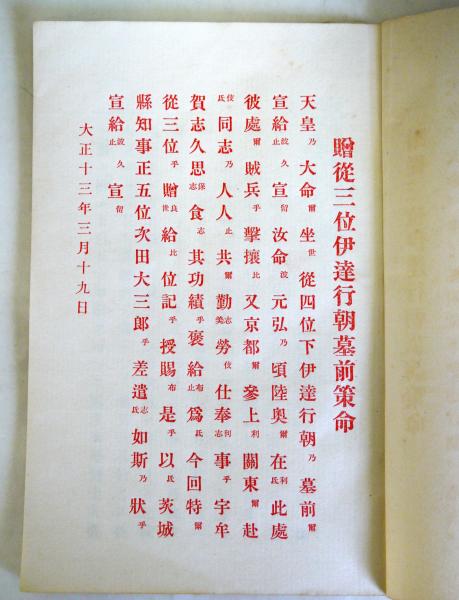 贈從三位伊達行朝墓前策命
天皇乃大命爾坐世從四位下伊達行朝乃墓前爾
宣給波久止宣留汝命波元弘乃頃陸奥爾在利氐此處
彼處爾賊兵乎擊攘比又京都爾參上利關東爾赴
伎氐同志乃人人止共爾勤志美勞伎仕奉利志事乎宇牟
賀志久思保志食志其功績乎褒給布止爲氐今回特爾
從三位乎贈良世給比位記乎授賜布是乎以氐茨城
縣知事正五位次田大三郎乎差遣志氐如斯乃狀乎
宣給波久止宣留
大正十三年三月十九日